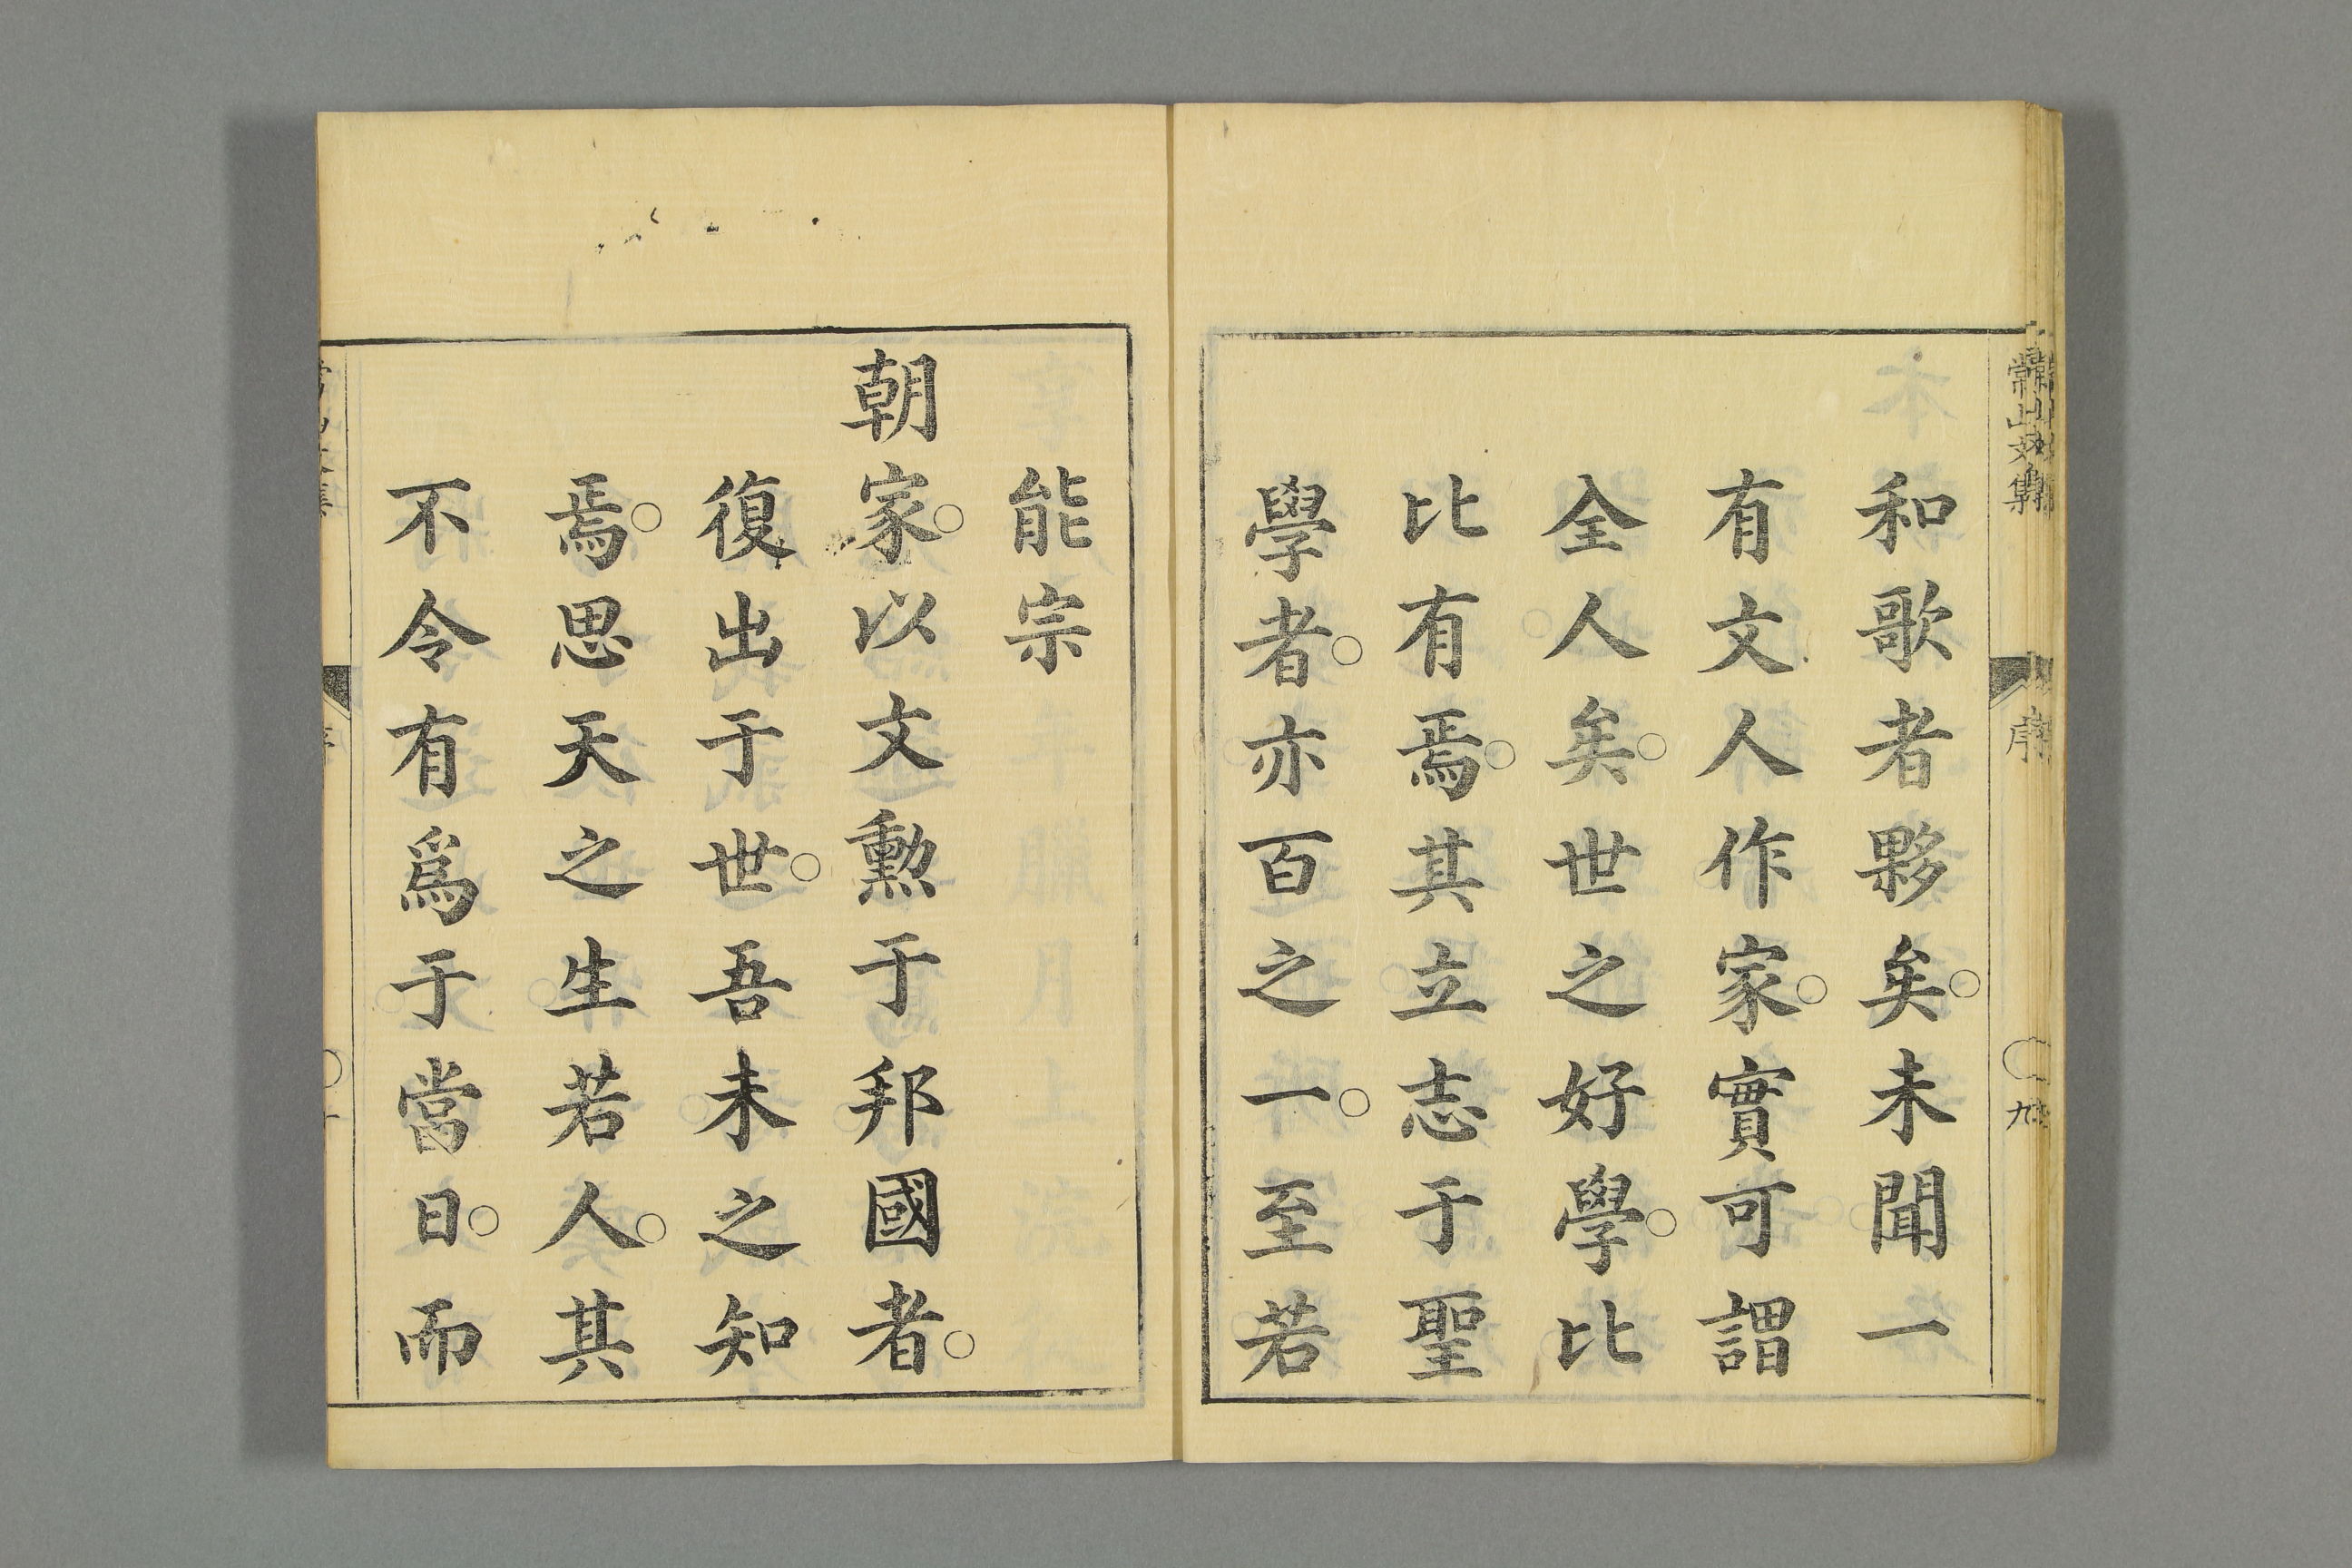 常山文集
序
九
和歌者夥矣○未聞一
有文人作家○實可謂
全人矣○世之好學○比
比有焉○其立志于聖
學者○亦百之一○至若
能宗
朝家○以文勲于邦國者○
復出于世○吾未之知
焉○思天之生若人○其
不令有爲于當日○而